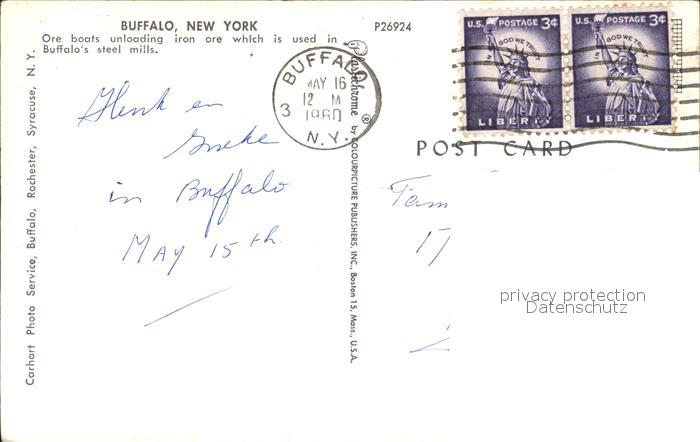 BUFFALO, NEW YORK
Ore boats unloading iron ore which is used in
Buffalo's steel mills.
P26924
Carhart Photo Service, Buffalo, Rochester, Syracuse, N. Y.
Plastichrome ® by COLOURPICTURE PUBLISHERS, INC., Boston 15, Mass., U.S.A.
BUFFALO
MAY 16
12 M
3 1960
N.Y.
U.S. POSTAGE 3¢
IN GOD WE TRUST
LIBERTY
U.S. POSTAGE 3¢
IN GOD WE TRUST
LIBERTY
POST CARD
Henk en
in Buffalo
MAY 15th.
Fam
17
privacy protection
Datenschutz